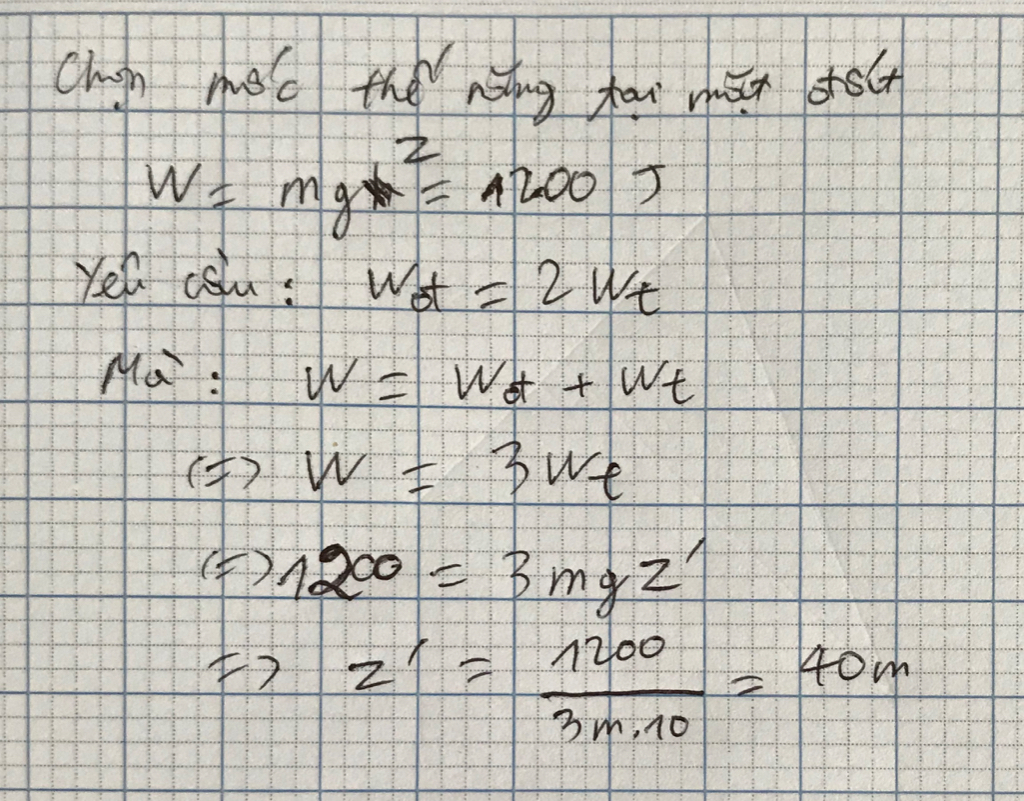 Chọn mốc thế năng tại mặt đất
W = mgz = 1200 J
Yêu cầu: Wđ = 2 Wt
Mà: W = Wđ + Wt
(=) W = 3 Wt
(=) 1200 = 3 mgz'
=> z' = 1200 / 3m.10 = 40m